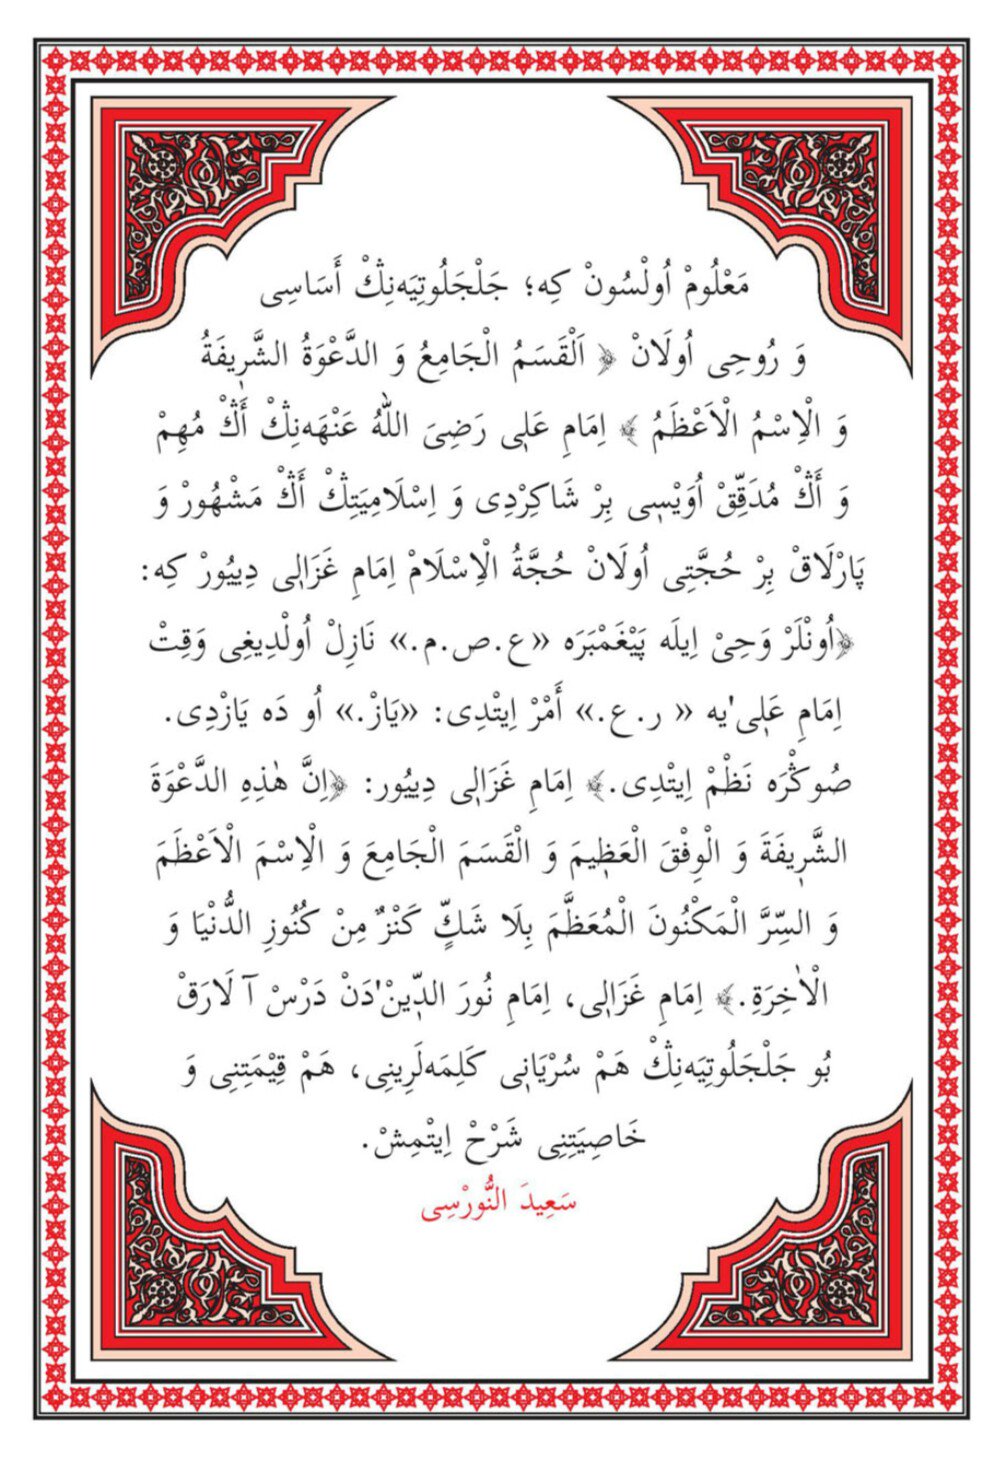 مَعْلُومْ اُولْسُونْ كِه؛ جَلْجَلُوتِيَه‌نِڭْ أَسَاسِى
وَ رُوحِى اُولَانْ ﴿ اَلْقَسَمُ الْجَامِعُ وَ الدَّعْوَةُ الشَّرٖيفَةُ
وَ الْاِسْمُ الْاَعْظَمُ ﴾ اِمَامِ عَلٖى رَضِىَ اللّٰهُ عَنْهَه‌نِڭْ أَڭْ مُهِمْ
وَ أَڭْ مُدَقِّقْ اُوَيْسٖى بِرْ شَاكِرْدِى وَ اِسْلَامِيَتِڭْ أَڭْ مَشْهُورْ وَ
پَارْلَاقْ بِرْ حُجَّتِى اُولَانْ حُجَّةُ الْاِسْلَامْ اِمَامِ غَزَالٖى دِييُورْ كِه:
﴿اُونْلَرْ وَحِىْ اِيلَه پَيْغَمْبَرَه «ع.ص.م.» نَازِلْ اُولْدِيغِى وَقِتْ
اِمَامِ عَلٖى'يه « ر.ع.» أَمْرْ اِيتْدِى: «يَازْ.» اُو دَه يَازْدِى.
صُوكْرَه نَظْمْ اِيتْدِى.﴾ اِمَامِ غَزَالٖى دِييُور: ﴿اِنَّ هٰذِهِ الدَّعْوَةَ
الشَّرٖيفَةَ وَ الْوِفْقَ الْعَظٖيمَ وَ الْقَسَمَ الْجَامِعَ وَ الْاِسْمَ الْاَعْظَمَ
وَ السِّرَّ الْمَكْنُونَ الْمُعَظَّمَ بِلَا شَكٍّ كَنْزٌ مِنْ كُنُوزِ الدُّنْيَا وَ
الْاٰخِرَةِ.﴾ اِمَامِ غَزَالٖى، اِمَامِ نُورَ الدّٖينْ'دَنْ دَرْسْ آ لَارَقْ
بُو جَلْجَلُوتِيَه‌نِڭْ هَمْ سُرْيَانٖى كَلِمَه‌لَرِينِى، هَمْ قِيْمَتِنِى وَ
خَاصِيَتِنِى شَرْحْ اِيتْمِشْ.
سَعِيدَ النُّورْسِى